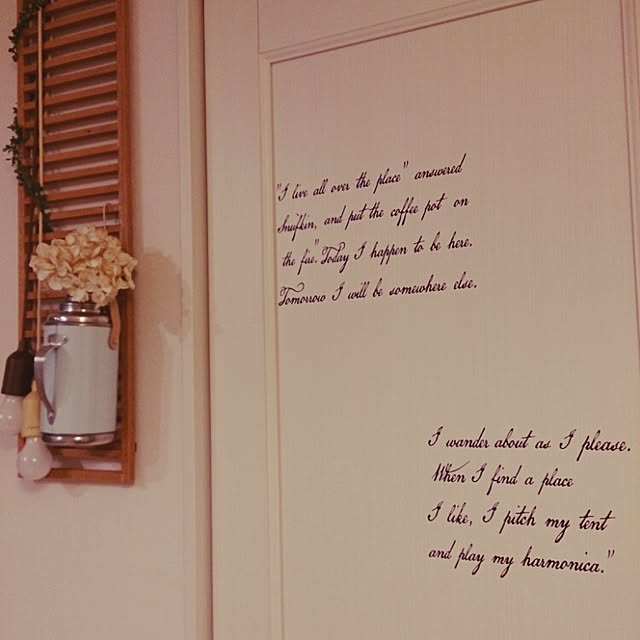 "I live all over the place" answered
Snufkin, and put the coffee pot on
the fire". Today I happen to be here.
Tomorrow I will be somewhere else.
I wander about as I please.
When I find a place
I like, I pitch my tent
and play my harmonica."